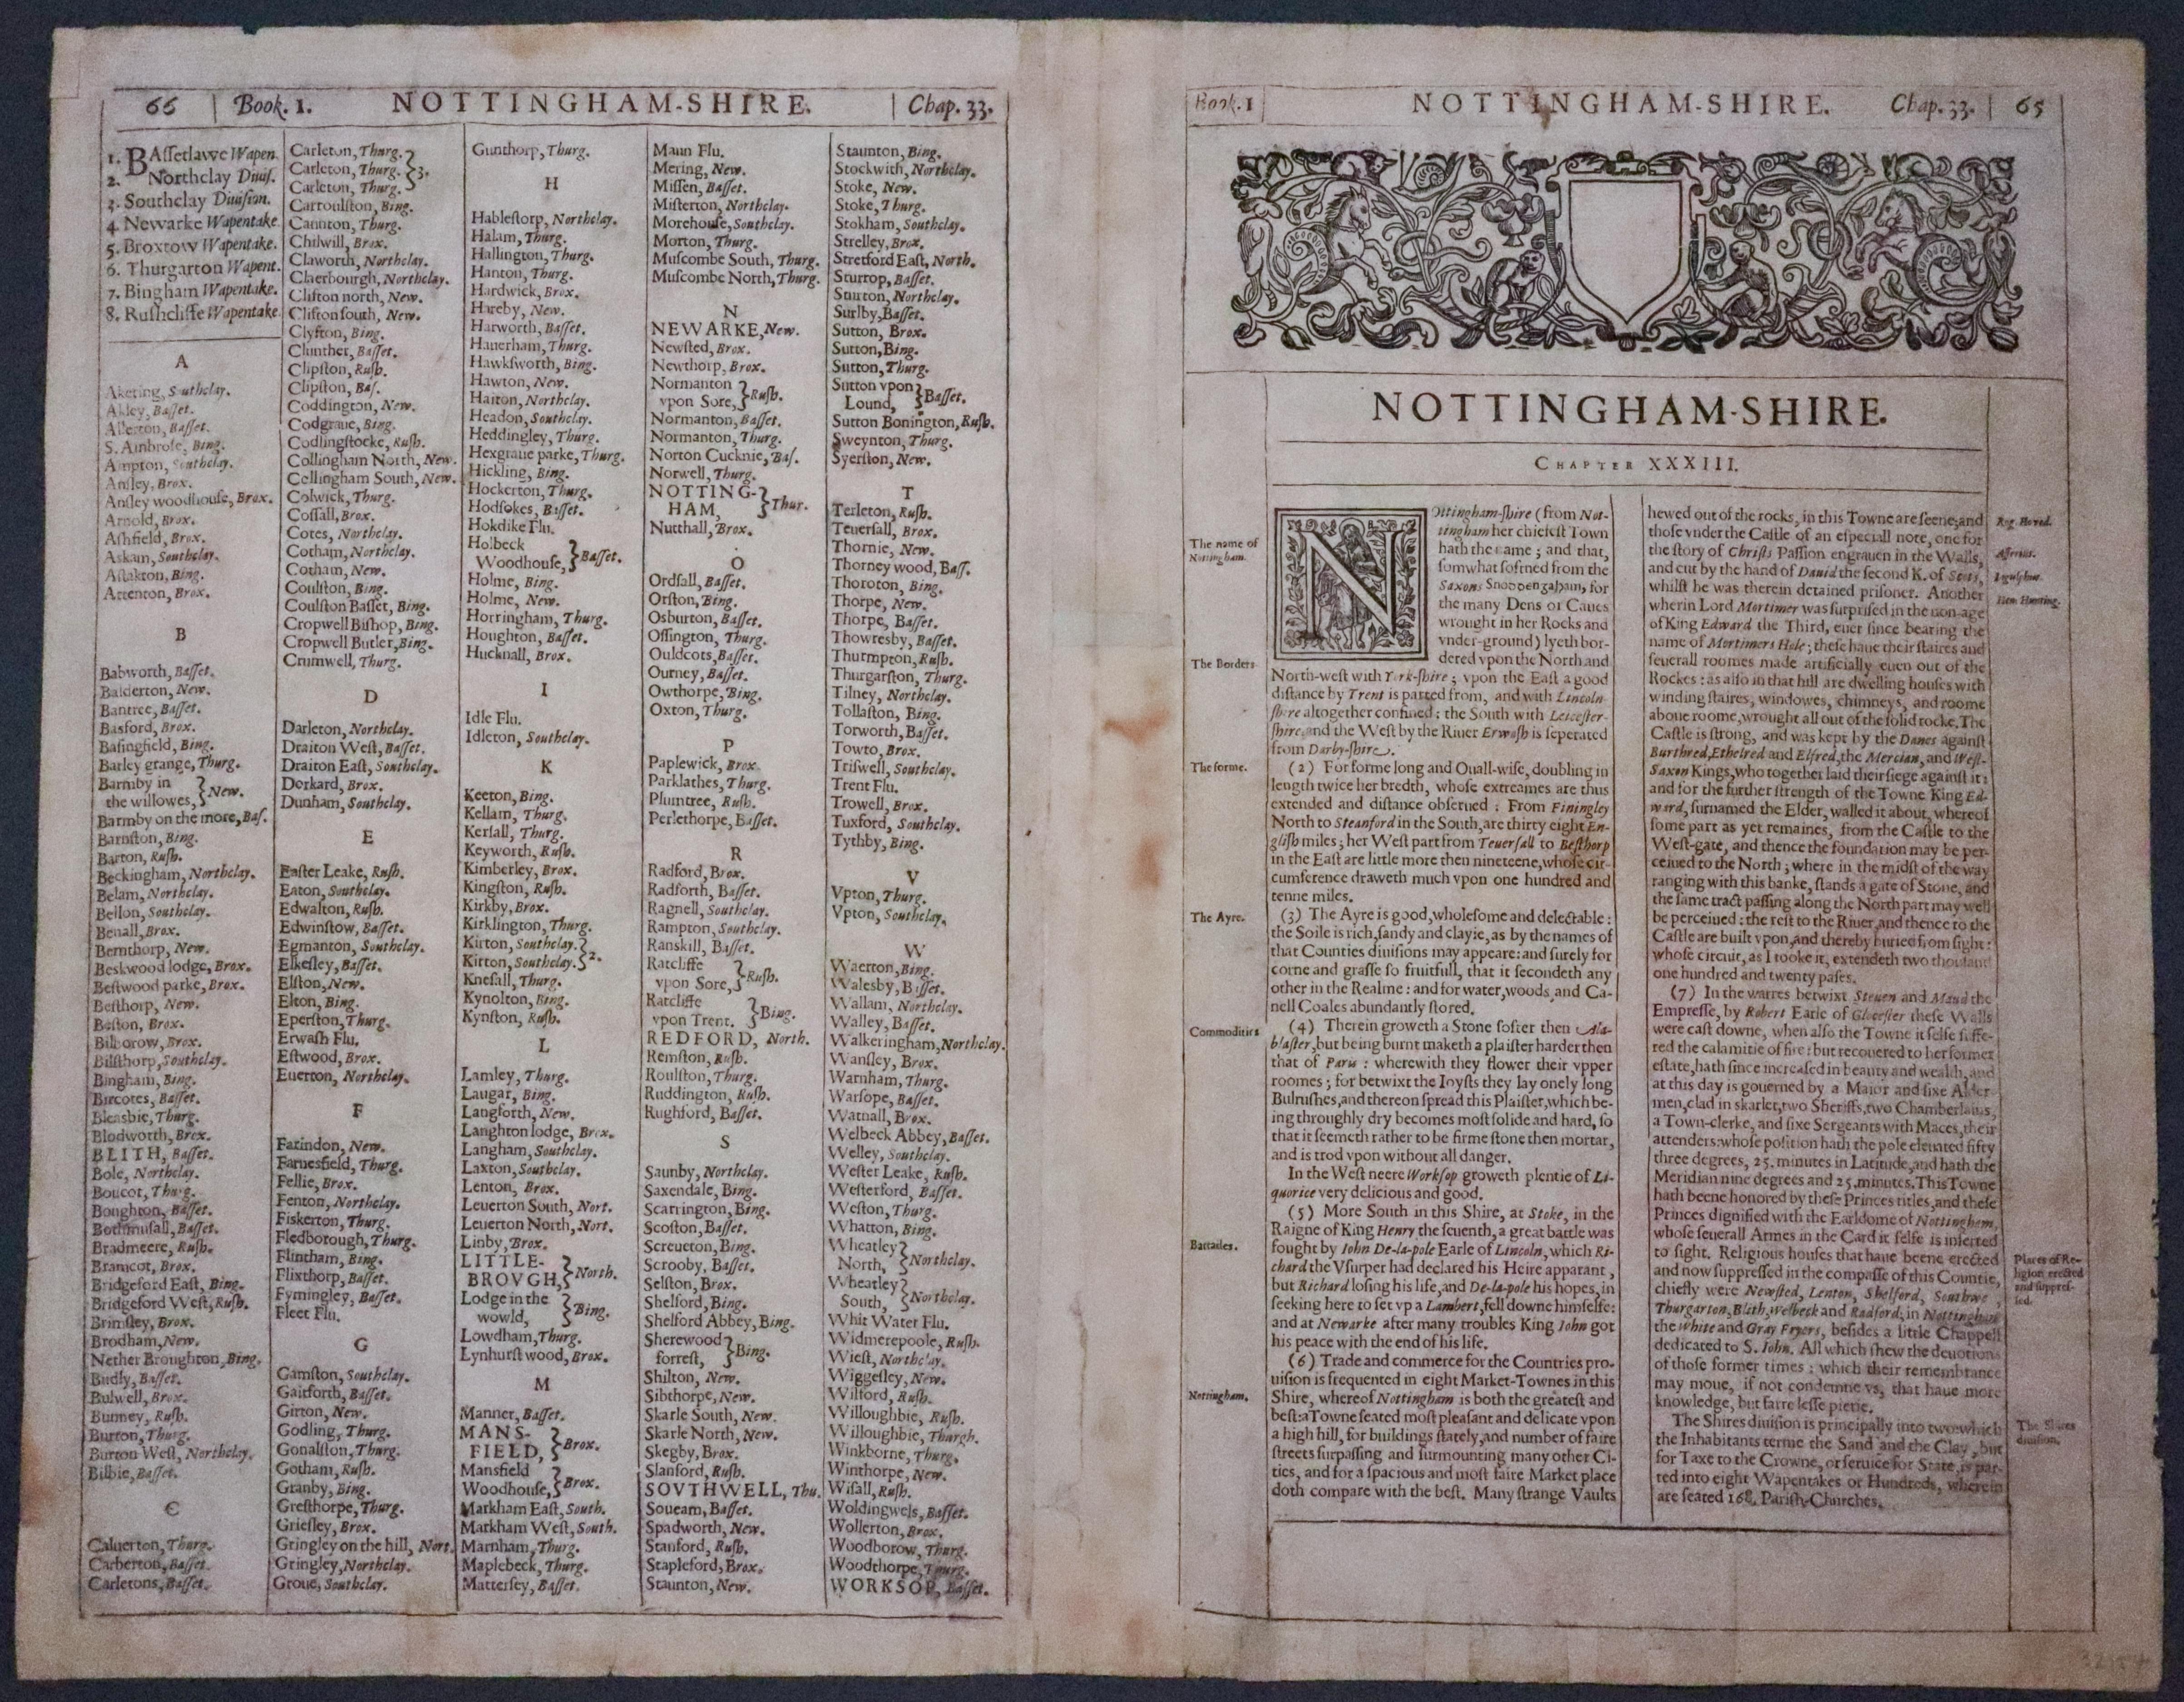 66 Book. 1. NOTTINGHAM-SHIRE. Chap. 33.
1. BAſſetlawe Wapen.
2. Northclay Diuiſ.
3. Southclay Diuiſion.
4. Newarke Wapentake.
5. Broxtow Wapentake.
6. Thurgarton Wapent.
7. Bingham Wapentake.
8. Ruſhcliffe Wapentake.
A
Akering, Southclay.
Akley, Baſſet.
Allerton, Baſſet.
S. Ambroſe, Bing.
Ampton, Southclay.
Anſley, Brox.
Anſley woodhouſe, Brox.
Arnold, Brox.
Aſhfield, Brox.
Askam, Southclay.
Aſlakton, Bing.
Attenton, Brox.
B
Babworth, Baſſet.
Balderton, New.
Bantree, Baſſet.
Basford, Brox.
Baſingfield, Bing.
Batley grange, Thurg.
Barmby in
the willowes, } New.
Barmby on the more, Baſ.
Barnſton, Bing.
Barton, Ruſh.
Beckingham, Northclay.
Belam, Northclay.
Bellon, Southclay.
Benall, Brox.
Bernthorp, New.
Beskwood lodge, Brox.
Beſtwood parke, Brox.
Beſthorp, New.
Beſton, Brox.
Bilborow, Brox.
Bilſthorp, Southclay.
Bingham, Bing.
Bircotes, Baſſet.
Bleasbie, Thurg.
Blodworth, Brox.
BLITH, Baſſet.
Bole, Northclay.
Boucot, Thurg.
Boughton, Baſſet.
Bothmſall, Baſſet.
Bradmeere, Ruſh.
Bramcot, Brox.
Bridgeford East, Bing.
Bridgeford Weſt, Ruſh.
Brimſley, Brox.
Brodham, New.
Nether Broughton, Bing.
Budly, Baſſet.
Bulwell, Brox.
Bunney, Ruſh.
Burton, Thurg.
Burton Weſt, Northclay.
Bilbie, Baſſet.
C
Caluerton, Thurg.
Carberton, Baſſet.
Carletons, Baſſet.
Carleton, Thurg.
Carleton, Thurg. } 3.
Carleton, Thurg.
Carroulſton, Bing.
Caunton, Thurg.
Chilwill, Brox.
Claworth, Northclay.
Claerbourgh, Northclay.
Clifton north, New.
Clifton ſouth, New.
Clyfton, Bing.
Clunther, Baſſet.
Clipſton, Ruſh.
Clipſton, Baſ.
Coddington, New.
Codgraue, Bing.
Codlingſtocke, Ruſh.
Collingham North, New.
Collingham South, New.
Colwick, Thurg.
Coſſall, Brox.
Cotes, Northclay.
Cotham, Northclay.
Cotham, New.
Coulſton, Bing.
Coulſton Baſſet, Bing.
Cropwell Biſhop, Bing.
Cropwell Butler, Bing.
Crumwell, Thurg.
D
Darleton, Northclay.
Draiton Weſt, Baſſet.
Draiton East, Southclay.
Dorkard, Brox.
Dunham, Southclay.
E
Easter Leake, Ruſh.
Eaton, Southclay.
Edwalton, Ruſh.
Edwinſtow, Baſſet.
Egmanton, Southclay.
Elkeſley, Baſſet.
Elſton, New.
Elton, Bing.
Eperſton, Thurg.
Erwaſh Flu.
Eſtwood, Brox.
Euerton, Northclay.
F
Farindon, New.
Farnesfield, Thurg.
Fellie, Brox.
Fenton, Northclay.
Fiskerton, Thurg.
Fledborough, Thurg.
Flintham, Bing.
Flixthorp, Baſſet.
Fymingley, Baſſet.
Fleet Flu.
G
Gamſton, Southclay.
Gaitforth, Baſſet.
Girton, New.
Godling, Thurg.
Gonalſton, Thurg.
Gotham, Ruſh.
Granby, Bing.
Greſthorpe, Thurg.
Grieſley, Brox.
Gringley on the hill, Nort.
Gringley, Northclay.
Groue, Southclay.
Gunthorp, Thurg.
H
Hableſtorp, Northclay.
Halam, Thurg.
Hallington, Thurg.
Hanton, Thurg.
Hardwick, Brox.
Hareby, New.
Harworth, Baſſet.
Hauerham, Thurg.
Hawkſworth, Bing.
Hawton, New.
Haiton, Northclay.
Headon, Southclay.
Heddingley, Thurg.
Hexgraue parke, Thurg.
Hickling, Bing.
Hockerton, Thurg.
Hodſokes, Baſſet.
Hokdike Flu.
Holbeck
Woodhouſe, } Baſſet.
Holme, Bing.
Holme, New.
Horringham, Thurg.
Houghton, Baſſet.
Hucknall, Brox.
I
Idle Flu.
Idleton, Southclay.
K
Keeton, Bing.
Kellam, Thurg.
Kerſall, Thurg.
Keyworth, Ruſh.
Kimberley, Brox.
Kingſton, Ruſh.
Kirkby, Brox.
Kirklington, Thurg.
Kirton, Southclay.
Kirton, Southclay. } 2.
Kneſall, Thurg.
Kynolton, Bing.
Kynſton, Ruſh.
L
Lamley, Thurg.
Laugar, Bing.
Langforth, New.
Langhton lodge, Brox.
Langham, Southclay.
Laxton, Southclay.
Lenton, Brox.
Leuerton South, Nort.
Leuerton North, Nort.
Linby, Brox.
LITTLE-
BROVGH, } North.
Lodge in the
wowld, } Bing.
Lowdham, Thurg.
Lynhurſt wood, Brox.
M
Manner, Baſſet.
MANS-
FIELD, } Brox.
Mansfield
Woodhouſe, } Brox.
Markham East, South.
Markham Weſt, South.
Marnham, Thurg.
Maplebeck, Thurg.
Matterſey, Baſſet.
Maun Flu.
Mering, New.
Miſſen, Baſſet.
Miſterton, Northclay.
Morehouſe, Southclay.
Morton, Thurg.
Muſcombe South, Thurg.
Muſcombe North, Thurg.
N
NEWARKE, New.
Newſted, Brox.
Newthorp, Brox.
Normanton
vpon Sore, } Ruſh.
Normanton, Baſſet.
Normanton, Thurg.
Norton Cucknie, Baſ.
Norwell, Thurg.
NOTTING-
HAM, } Thur.
Nutthall, Brox.
O
Ordſall, Baſſet.
Orſton, Bing.
Osburton, Baſſet.
Oſſington, Thurg.
Ouldcots, Baſſet.
Ourney, Baſſet.
Owthorpe, Bing.
Oxton, Thurg.
P
Paplewick, Brox.
Parklathes, Thurg.
Plumtree, Ruſh.
Perlethorpe, Baſſet.
R
Radford, Brox.
Radforth, Baſſet.
Ragnell, Southclay.
Rampton, Southclay.
Ranskill, Baſſet.
Ratcliffe
vpon Sore, } Ruſh.
Ratcliffe
vpon Trent. } Bing.
REDFORD, North.
Remſton, Ruſh.
Roulſton, Thurg.
Ruddington, Ruſh.
Rughford, Baſſet.
S
Saunby, Northclay.
Saxendale, Bing.
Scarrington, Bing.
Scoſton, Baſſet.
Screueton, Bing.
Scrooby, Baſſet.
Selſton, Brox.
Shelford, Bing.
Shelford Abbey, Bing.
Sherewood
forreſt, } Bing.
Shilton, New.
Sibthorpe, New.
Skarle South, New.
Skarle North, New.
Skegby, Brox.
Slanford, Ruſh.
SOVTHWELL, Thu.
Soueam, Baſſet.
Spadworth, New.
Stanford, Ruſh.
Stapleford, Brox.
Staunton, New.
Staunton, Bing.
Stockwith, Northclay.
Stoke, New.
Stoke, Thurg.
Stokham, Southclay.
Strelley, Brox.
Stretford East, North.
Sturrop, Baſſet.
Sturton, Northclay.
Surlby, Baſſet.
Sutton, Brox.
Sutton, Bing.
Sutton, Thurg.
Sutton vpon
Lound, } Baſſet.
Sutton Bonington, Ruſh.
Sweynton, Thurg.
Syerſton, New.
T
Terleton, Ruſh.
Teuerſall, Brox.
Thornie, New.
Thorney wood, Baſſ.
Thoroton, Bing.
Thorpe, New.
Thorpe, Baſſet.
Thowresby, Baſſet.
Thurmpton, Ruſh.
Thurgarſton, Thurg.
Tilney, Northclay.
Tollaſton, Bing.
Torworth, Baſſet.
Towto, Brox.
Triſwell, Southclay.
Trent Flu.
Trowell, Brox.
Tuxford, Southclay.
Tythby, Bing.
V
Vpton, Thurg.
Vpton, Southclay.
W
Waerton, Bing.
Walesby, Baſſet.
Wallam, Northclay.
Walley, Baſſet.
Walkeringham, Northclay.
Wanſley, Brox.
Warnham, Thurg.
Warſope, Baſſet.
Watnall, Brox.
Welbeck Abbey, Baſſet.
Welley, Southclay.
Weſter Leake, Ruſh.
Weſterford, Baſſet.
Weſton, Thurg.
Whatton, Bing.
Wheatley
North, } Northclay.
Wheatley
South, } Northclay.
Whit Water Flu.
Widmerepoole, Ruſh.
Wieſt, Northclay.
Wiggeſley, New.
Wilford, Ruſh.
Willoughbie, Ruſh.
Willoughbie, Thurgh.
Winkborne, Thurg.
Winthorpe, New.
Wiſall, Ruſh.
Woldingwels, Baſſet.
Wollerton, Brox.
Woodborow, Thurg.
Woodthorpe, Thurg.
WORKSOP, Baſſet.
Book. 1 NOTTINGHAM-SHIRE. Chap. 33. 65
NOTTINGHAM-SHIRE.
CHAPTER XXXIII.
The name of
Nottingham.
NOttingham-ſhire (from Not-
tingham her chiefeſt Town
hath the name; and that,
ſomwhat ſoftned from the
Saxons Snoddengaham, for
the many Dens or Caues
wrought in her Rocks and
vnder-ground) lyeth bor-
The Borders.
dered vpon the North and
North-weſt with York-ſhire; vpon the Eaſt a good
diſtance by Trent is parted from, and with Lincoln-
ſhire altogether confined: the South with Leiceſter-
ſhire, and the Weſt by the Riuer Erwaſh is ſeperated
from Darby-ſhire.
The forme.
(2) For forme long and Ouall-wiſe, doubling in
length twice her bredth, whoſe extreames are thus
extended and diſtance obſerued: From Finingley
North to Steanford in the South, are thirty eight En-
gliſh miles; her Weſt part from Teuerſall to Beſthorp
in the East are little more then nineteene, whoſe cir-
cumference draweth much vpon one hundred and
tenne miles.
The Ayre.
(3) The Ayre is good, wholeſome and delectable:
the Soile is rich, ſandy and clayie, as by the names of
that Counties diuiſions may appeare: and ſurely for
corne and graſſe ſo fruitfull, that it ſecondeth any
other in the Realme: and for water, woods, and Ca-
nell Coales abundantly ſtored.
Commodities
(4) Therein groweth a Stone ſofter then Ala-
blaſter, but being burnt maketh a plaiſter harder then
that of Paris: wherewith they flower their vpper
roomes; for betwixt the Ioyſts they lay onely long
Bulruſhes, and thereon ſpread this Plaiſter, which be-
ing throughly dry becomes moſt ſolide and hard, ſo
that it ſeemeth rather to be firme ſtone then mortar,
and is trod vpon without all danger.
In the Weſt neere Workſop groweth plentie of Li-
quorice very delicious and good.
(5) More South in this Shire, at Stoke, in the
Raigne of King Henry the ſeuenth, a great battle was
Battailes.
fought by Iohn De-la-pole Earle of Lincoln, which Ri-
chard the Vſurper had declared his Heire apparant,
but Richard loſing his life, and De-la-pole his hopes, in
ſeeking here to ſet vp a Lambert, fell downe himſelfe:
and at Newarke after many troubles King Iohn got
his peace with the end of his life.
(6) Trade and commerce for the Countries pro-
uiſion is frequented in eight Market-Townes in this
Nottingham.
Shire, whereof Nottingham is both the greateſt and
beſt: a Towne ſeated moſt pleaſant and delicate vpon
a high hill, for buildings ſtately, and number of faire
ſtreets ſurpaſſing and ſurmounting many other Ci-
ties, and for a ſpacious and moſt faire Market place
doth compare with the beſt. Many ſtrange Vaults
hewed out of the rocks, in this Towne are ſeene, and
thoſe vnder the Caſtle of an eſpeciall note, one for
the ſtory of Chriſts Paſſion engrauen in the Walls,
and cut by the hand of Dauid the ſecond K. of Scots,
whilſt he was therein detained priſoner. Another
wherein Lord Mortimer was ſurpriſed in the non-age
of King Edward the Third, euer ſince bearing the
name of Mortimers Hole; theſe haue their ſtaires and
ſeuerall roomes made artificially euen out of the
Rockes: as alſo in that hill are dwelling houſes with
winding ſtaires, windowes, chimneys, and roome
aboue roome, wrought all out of the ſolid rocke. The
Caſtle is ſtrong, and was kept by the Danes againſt
Burthred, Ethelred and Elfred, the Mercian, and Weſt-
Saxon Kings, who together laid their ſiege againſt it:
and for the further ſtrength of the Towne King Ed-
ward, ſurnamed the Elder, walled it about, whereof
ſome part as yet remaines, from the Caſtle to the
Weſt-gate, and thence the foundation may be per-
ceiued to the North; where in the midſt of the way
ranging with this banke, ſtands a gate of Stone, and
the ſame tract paſſing along the North part may well
be perceiued: the reſt to the Riuer, and thence to the
Caſtle are built vpon, and thereby buried from ſight:
whoſe circuit, as I tooke it, extendeth two thouſand
one hundred and twenty paſes.
(7) In the warres betwixt Steuen and Maud the
Empreſſe, by Robert Earle of Gloceſter theſe Walls
were caſt downe, when alſo the Towne it ſelfe ſuffe-
red the calamitie of fire: but recouered to her former
eſtate, hath ſince increaſed in beauty and wealth, and
at this day is gouerned by a Maior and ſixe Alder-
men, clad in skarlet, two Sheriffs, two Chamberlains,
a Town-clerke, and ſixe Sergeants with Maces, their
attenders: whoſe poſition hath the pole eleuated fifty
three degrees, 25. minutes in Latitude, and hath the
Meridian nine degrees and 25. minutes. This Towne
hath beene honored by theſe Princes titles, and theſe
Princes dignified with the Earldome of Nottingham,
whoſe ſeuerall Armes in the Card it ſelfe is inſerted
to ſight. Religious houſes that haue beene erected
and now ſuppreſſed in the compaſſe of this Countie,
chiefly were Newſted, Lenton, Shelford, Southwe,
Thurgarton, Blith, Welbeck and Radford; in Nottingham
the White and Gray Fryers, beſides a little Chappell
dedicated to S. Iohn. All which ſhew the deuotions
of thoſe former times: which their remembrance
may moue, if not condemne vs, that haue more
knowledge, but farre leſſe pietie.
The Shires diuiſion is principally into two: which
the Inhabitants terme the Sand and the Clay, but
for Taxe to the Crowne, or ſeruice for State, is par-
ted into eight Wapentakes or Hundreds, wherein
are ſeated 168. Pariſh-Churches.
Rog. Houed.
Aſſerius.
Ingulphus.
Hen. Hunting.
Places of Re-
ligion erected
and ſuppreſ-
ſed.
The Shires
diuiſion.